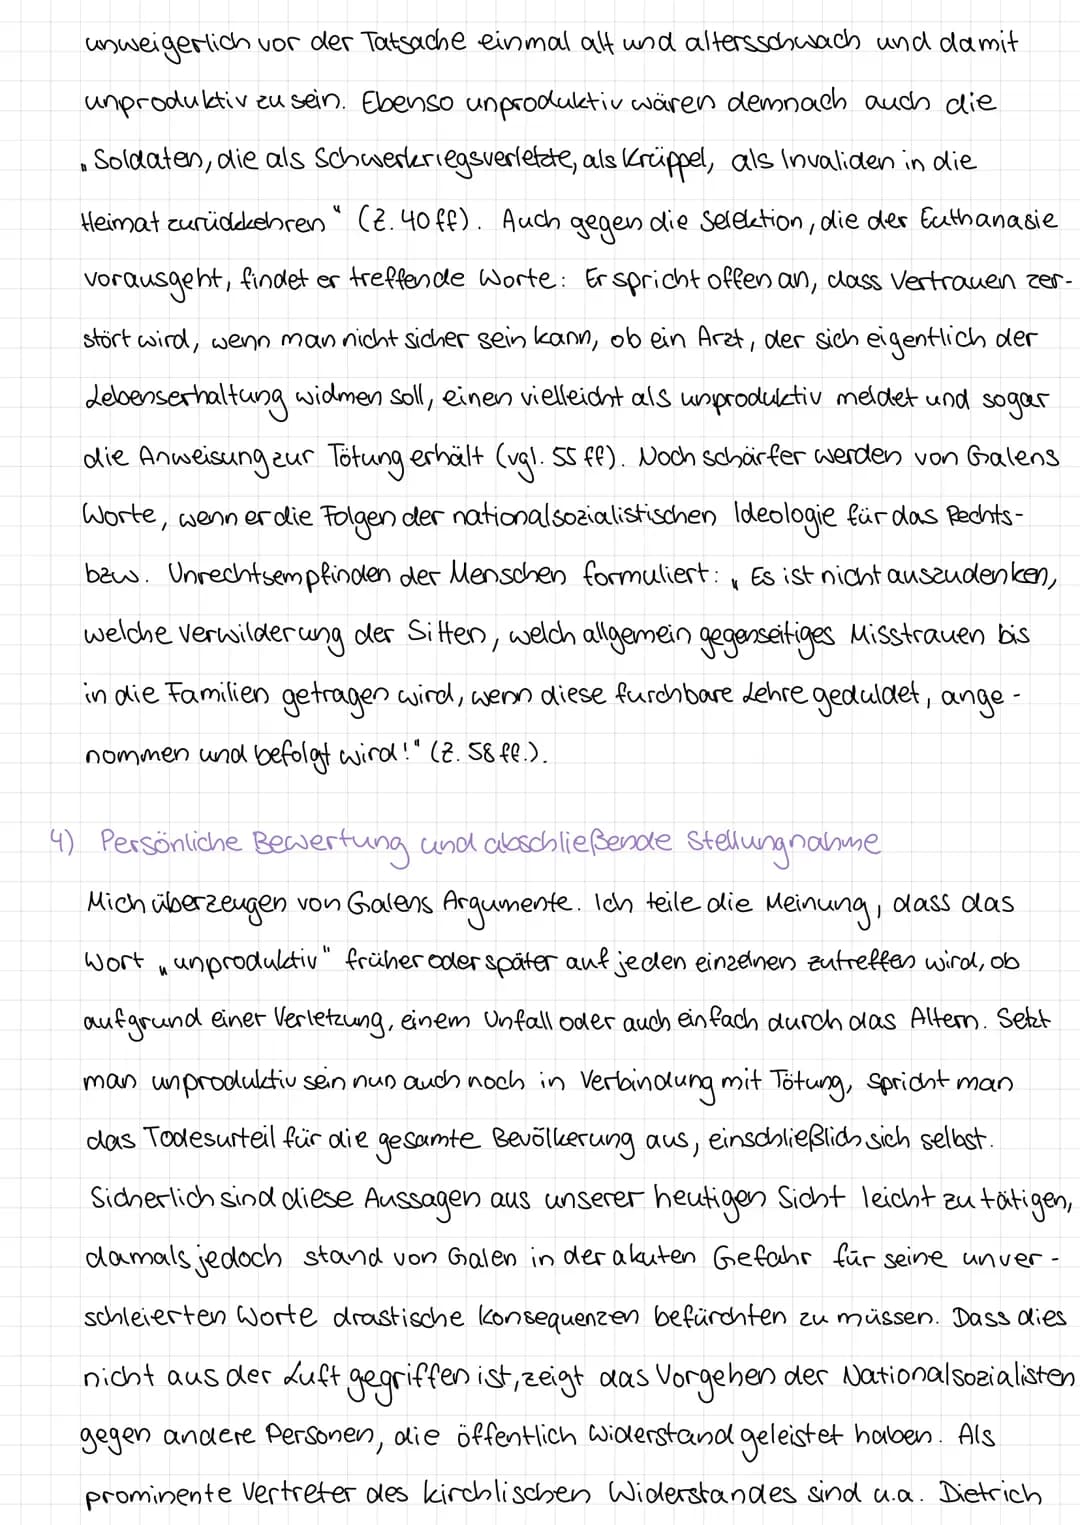 unweigerlich vor der Tatsache einmal alt und altersschwach und damit
unproduktiv zu sein. Ebenso unproduktiv wären demnach auch die
„Soldaten, die als Schwerkriegsverletzte, als Krüppel, als Invaliden in die
Heimat zurückkehren" (Z. 40 ff). Auch gegen die Selektion, die der Euthanasie
vorausgeht, findet er treffende Worte: Er spricht offen an, dass Vertrauen zer-
stört wird, wenn man nicht sicher sein kann, ob ein Arzt, der sich eigentlich der
Lebenserhaltung widmen soll, einen vielleicht als unproduktiv meldet und sogar
die Anweisung zur Tötung erhält (vgl. 55 ff). Noch schärfer werden von Galens
Worte, wenn er die Folgen der nationalsozialistischen Ideologie für das Rechts-
bzw. Unrechtsempfinden der Menschen formuliert: „Es ist nicht auszudenken,
welche Verwilderung der Sitten, welch allgemein gegenseitiges Misstrauen bis
in die Familien getragen wird, wenn diese furchbare Lehre geduldet, ange-
nommen und befolgt wird!" (Z. 58 ff.).
4) Persönliche Bewertung und abschließende Stellungnahme
Mich überzeugen von Galens Argumente. Ich teile die Meinung, dass das
Wort „unproduktiv" früher oder später auf jeden einzelnen zutreffen wird, ob
aufgrund einer Verletzung, einem Unfall oder auch einfach durch das Altern. Setzt
man unproduktiv sein nun auch noch in Verbindung mit Tötung, spricht man
das Todesurteil für die gesamte Bevölkerung aus, einschließlich sich selbst.
Sicherlich sind diese Aussagen aus unserer heutigen Sicht leicht zu tätigen,
damals jedoch stand von Galen in der akuten Gefahr für seine unver-
schleierten Worte drastische Konsequenzen befürchten zu müssen. Dass dies
nicht aus der Luft gegriffen ist, zeigt das Vorgehen der Nationalsozialisten
gegen andere Personen, die öffentlich Widerstand geleistet haben. Als
prominente Vertreter des kirchlischen Widerstandes sind u.a. Dietrich